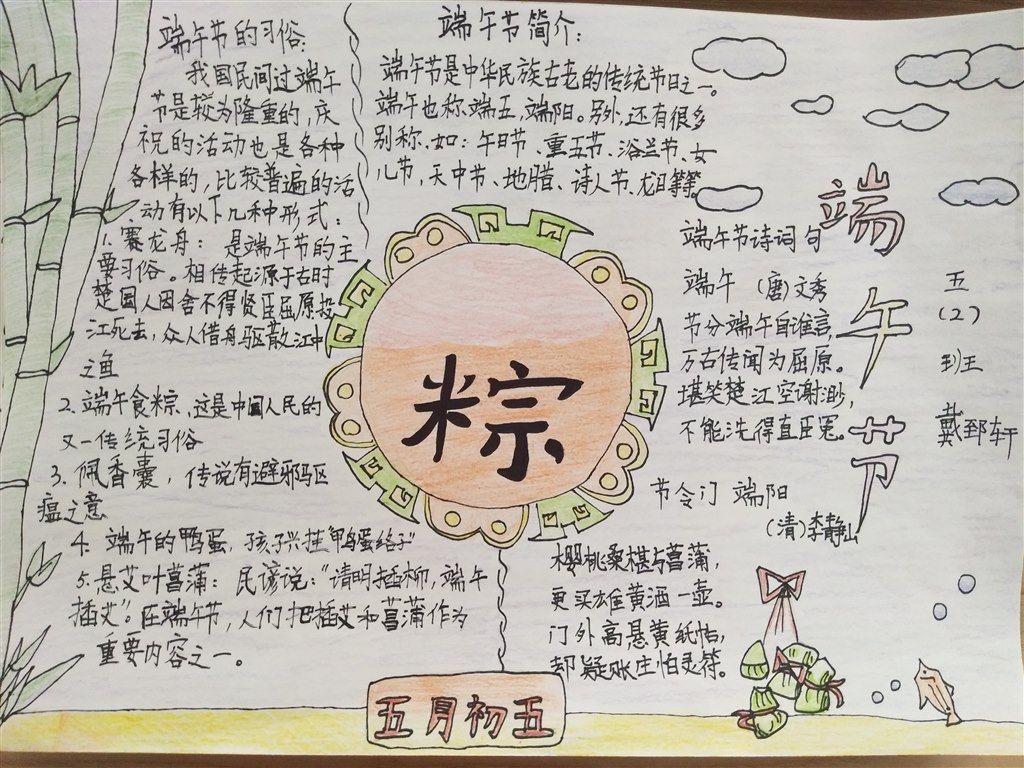 端午节的习俗:
我国民间过端午
节是较为隆重的,庆
祝的活动也是各种
各样的,比较普遍的活
动有以下几种形式:
1.赛龙舟: 是端午节的主
要习俗。相传起源于古时
楚国人因舍不得贤臣屈原投
江死去,众人借舟驱散江中
之鱼
2.端午食粽,这是中国人民的
又一传统习俗
3.佩香囊,传说有避邪驱
瘟之意
4.端午的鸭蛋,孩子兴挂"鸭蛋络子"
5.悬艾叶菖蒲: 民谚说:"清明插柳,端午
插艾"。在端午节,人们把插艾和菖蒲作为
重要内容之一。
端午节简介:
端午节是中华民族古老的传统节日之一。
端午也称端五,端阳。另外,还有很多
别称,如:午日节、重五节、浴兰节、女
儿节,天中节、地腊、诗人节、龙日等等。
粽
五月初五
端午节诗词句
端午 (唐)文秀
节分端午自谁言,
万古传闻为屈原。
堪笑楚江空渺渺,
不能洗得直臣冤。
节令门 端阳
(清)李静山
樱桃桑椹与菖蒲,
更买雄黄酒一壶。
门外高悬黄纸帖,
却疑账主怕灵符。
端午节
五
(2)
班
戴郅轩